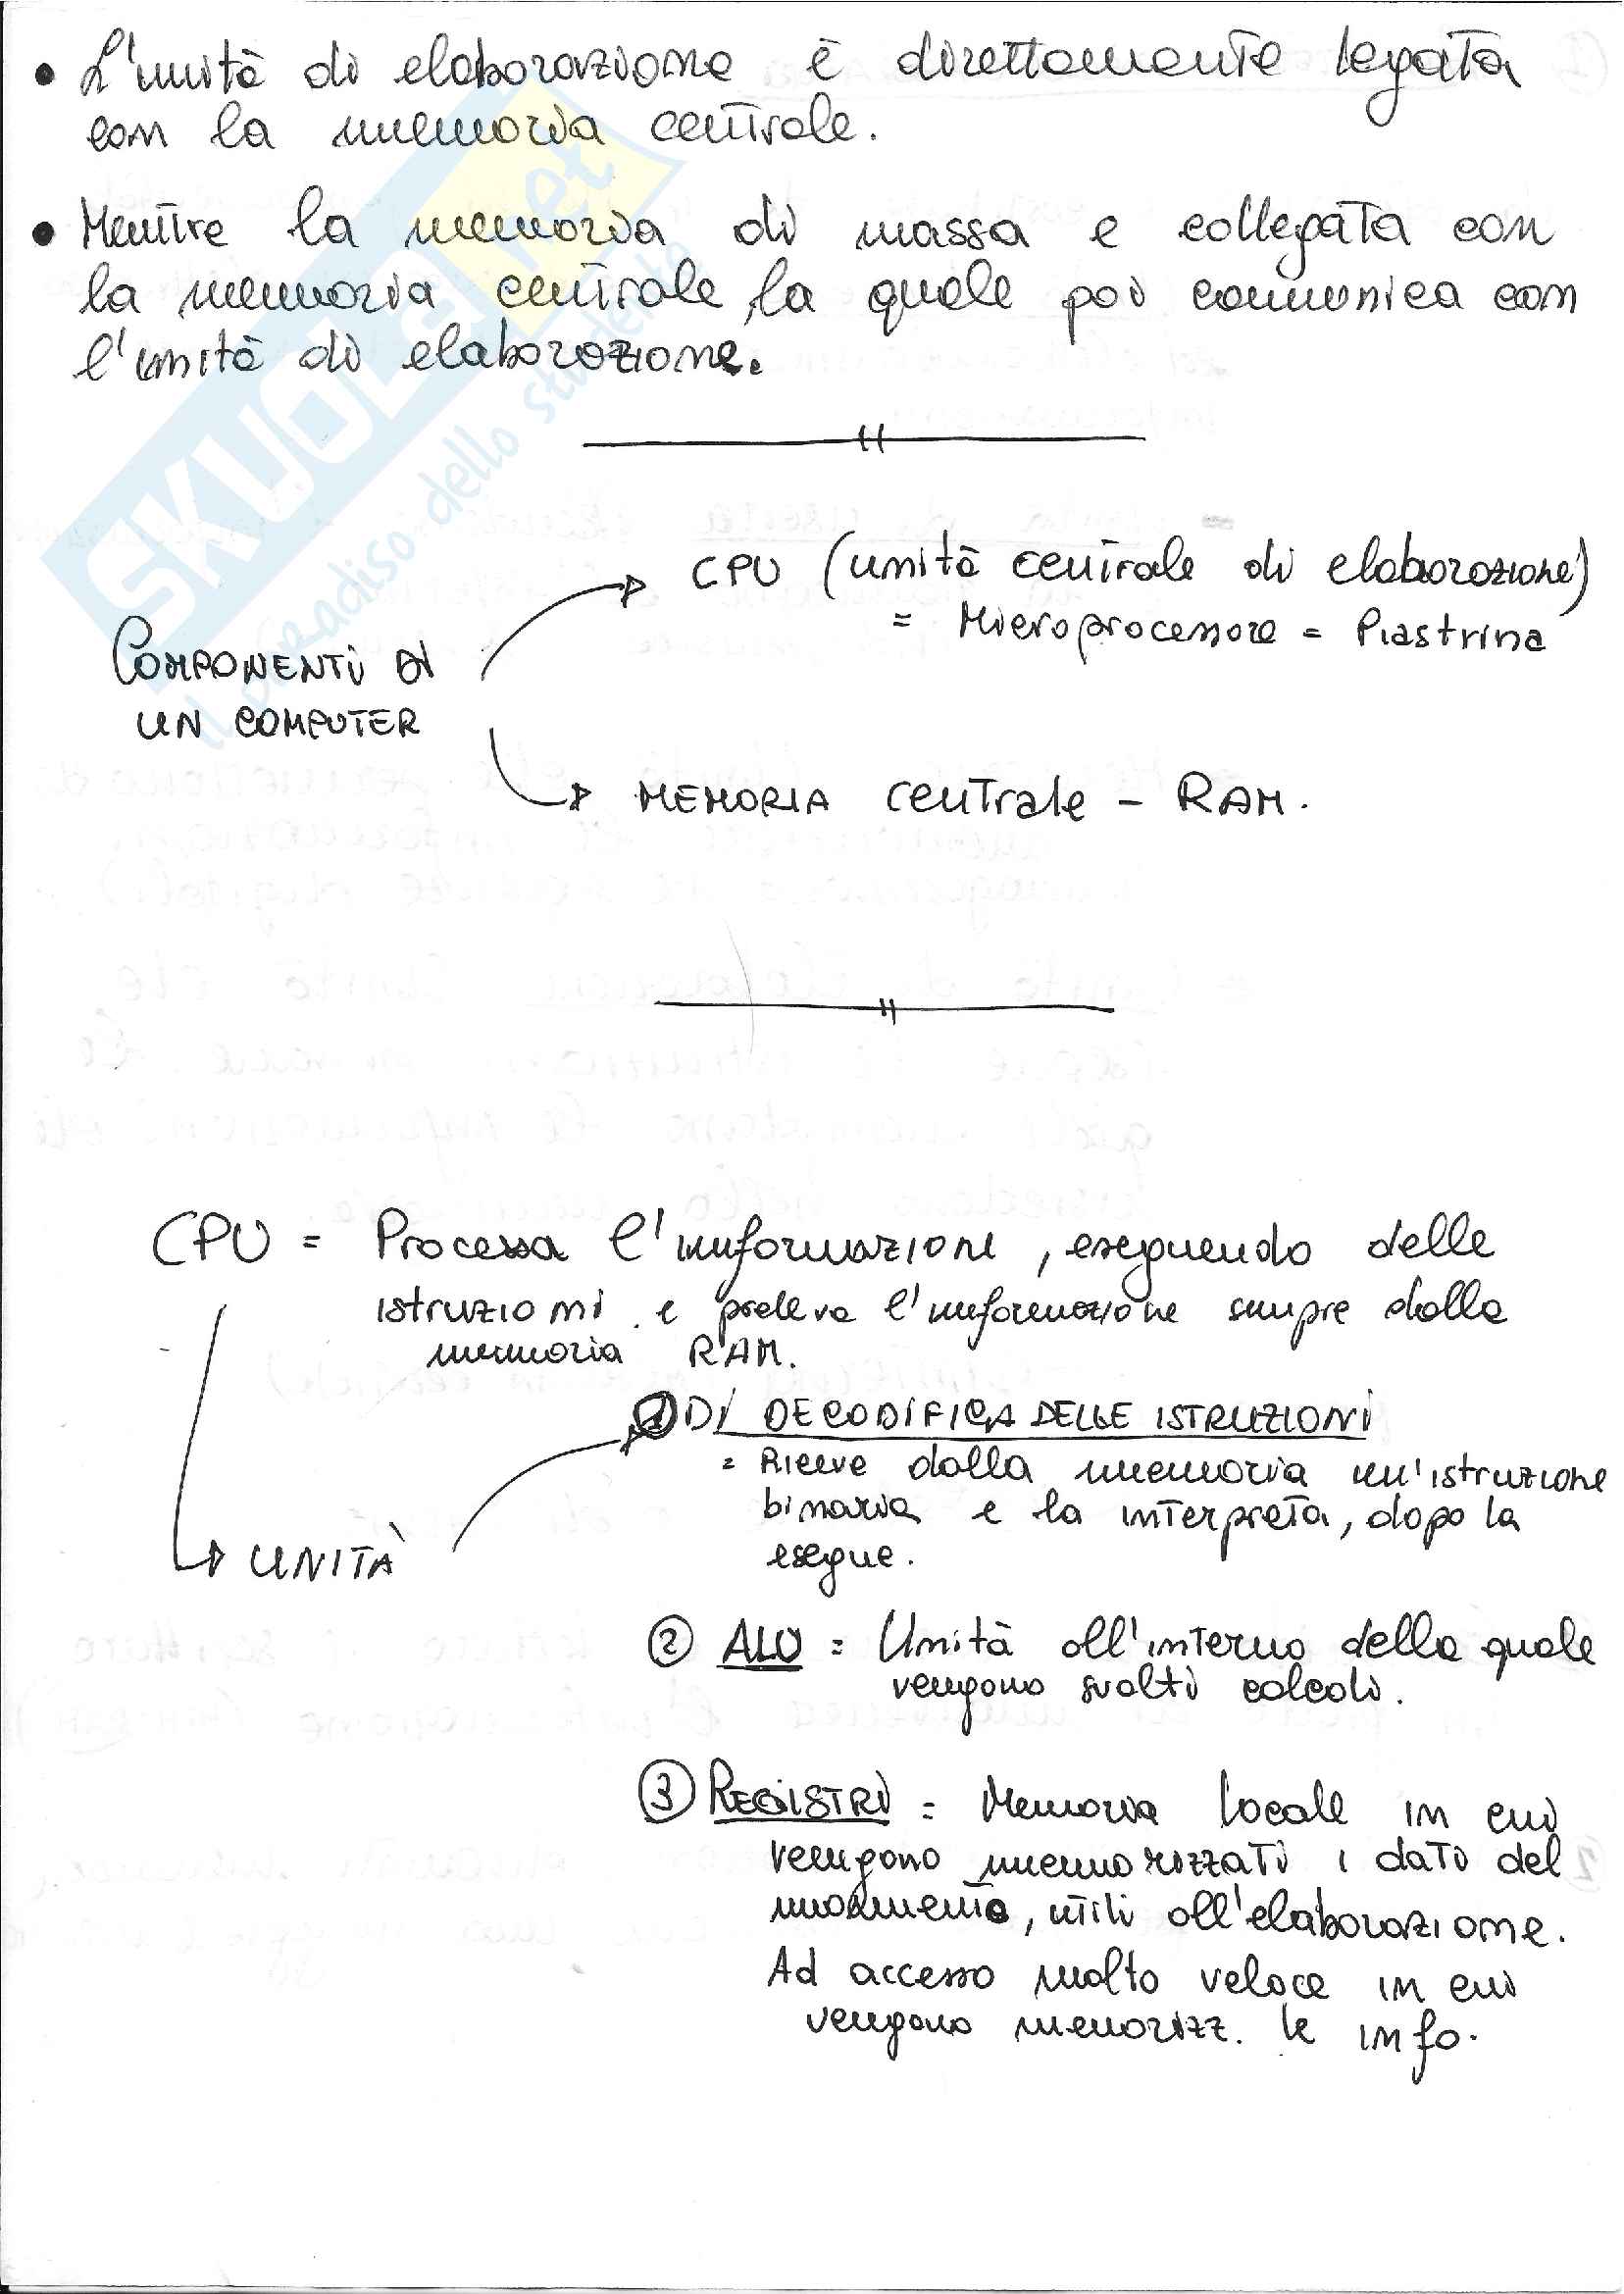 • L'unità di elaborazione è direttamente legata
con la memoria centrale.
• Mentre la memoria di massa e collegata con
la memoria centrale, la quale poi comunica con
l'unità di elaborazione.
CPU (unità centrale di elaborazione)
= Microprocessore = Piastrina
COMPONENTI DI
UN COMPUTER
MEMORIA centrale - RAM.
CPU = Processa l'informazione, eseguendo delle
istruzioni e preleva l'informazione sempre dalla
memoria RAM.
① DI DECODIFICA DELLE ISTRUZIONI
= Riceve dalla memoria un'istruzione
binaria e la interpreta, dopo la
esegue.
UNITÀ
② ALU = Unità all'interno della quale
vengono svolti calcoli.
③ REGISTRI = Memoria locale in cui
vengono memorizzati i dati del
momento, utili all'elaborazione.
Ad accesso molto veloce in cui
vengono memorizz. le info.
SKUOLA.net
il paradiso dello studente